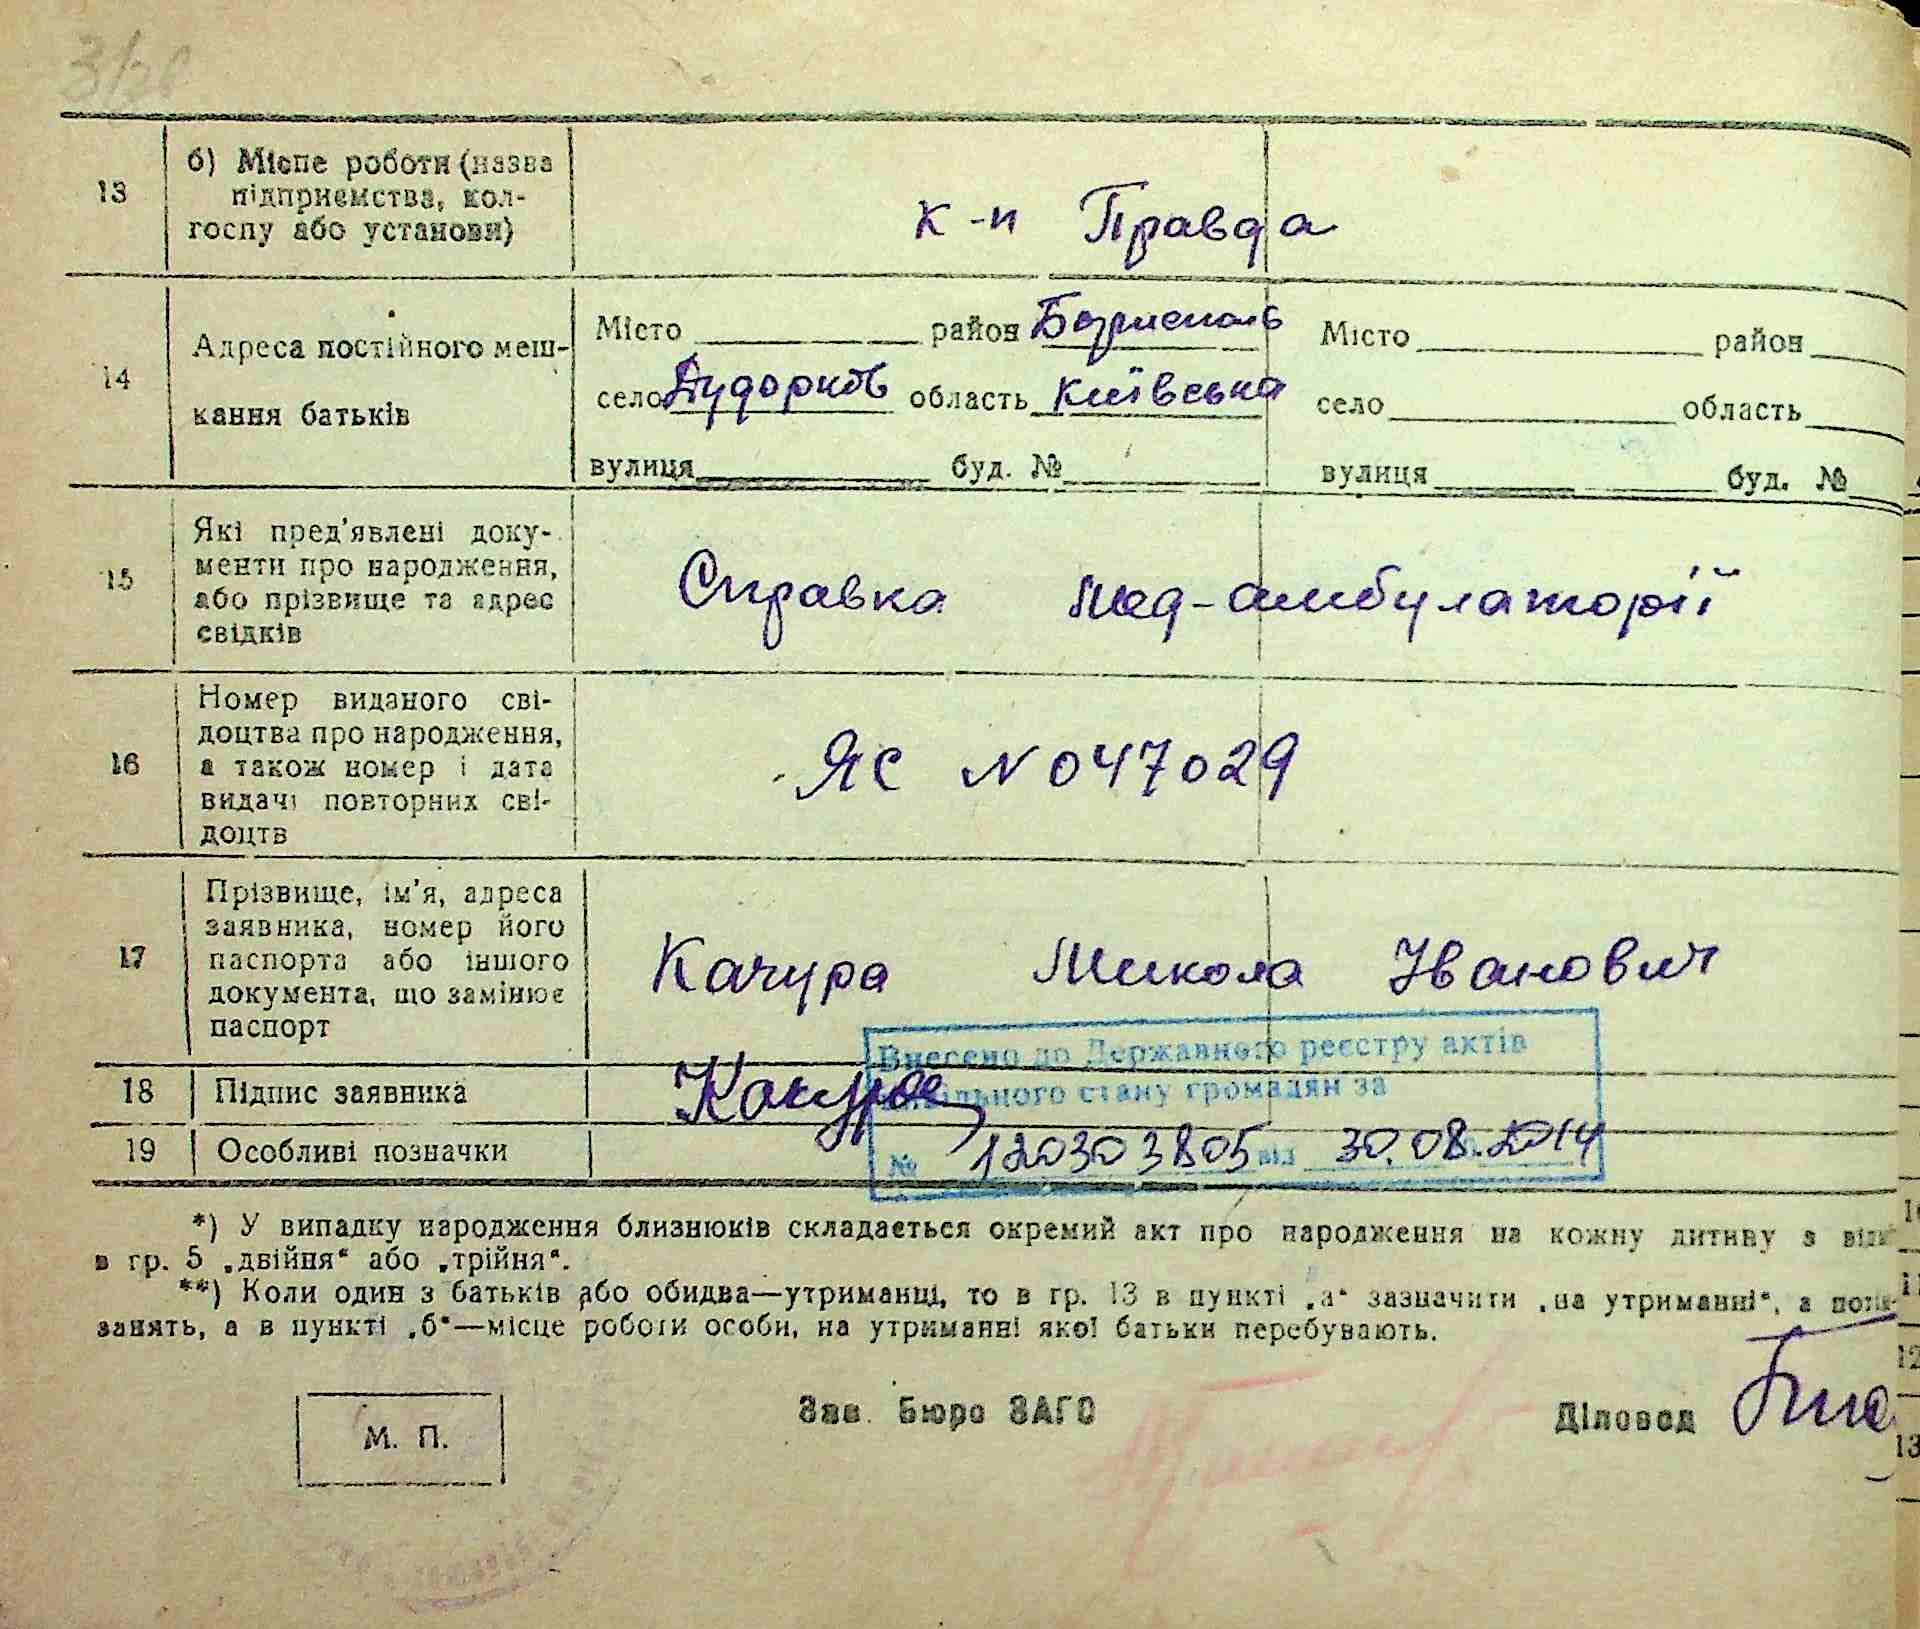 3/20
13
б) Місце роботи (назва
підприємства, кол-
госпу або установи)
к-п Правда
14
Адреса постійного меш-
кання батьків
Місто район Бориспаль
село Дударків область Київська
вулиця буд. №
Місто район
село область
вулиця буд. №
15
Які пред'явлені доку-
менти про народження,
або прізвище та адрес
свідків
Справка мед-амбулаторії
16
Номер виданого сві-
доцтва про народження,
а також номер і дата
видачі повторних сві-
доцтв
ЯС N 047029
17
Прізвище, ім'я, адреса
заявника, номер його
паспорта або іншого
документа, що замінює
паспорт
Качура Микола Іванович
18 Підпис заявника
Качура
19 Особливі позначки
Внесено до Державного реєстру актів
цивільного стану громадян за
№ 120303805 від 30.08.2014
*) У випадку народження близнюків складається окремий акт про народження на кожну дитину з від
в гр. 5 „двійня“ або „трійня“.
**) Коли один з батьків або обидва—утриманці, то в гр. 13 в пункті „а“ зазначити „на утриманні“, а
занять, а в пункті „б“—місце роботи особи, на утриманні якої батьки перебувають.
М. П.
Зав. Бюро ЗАГС
Діловод
12
13